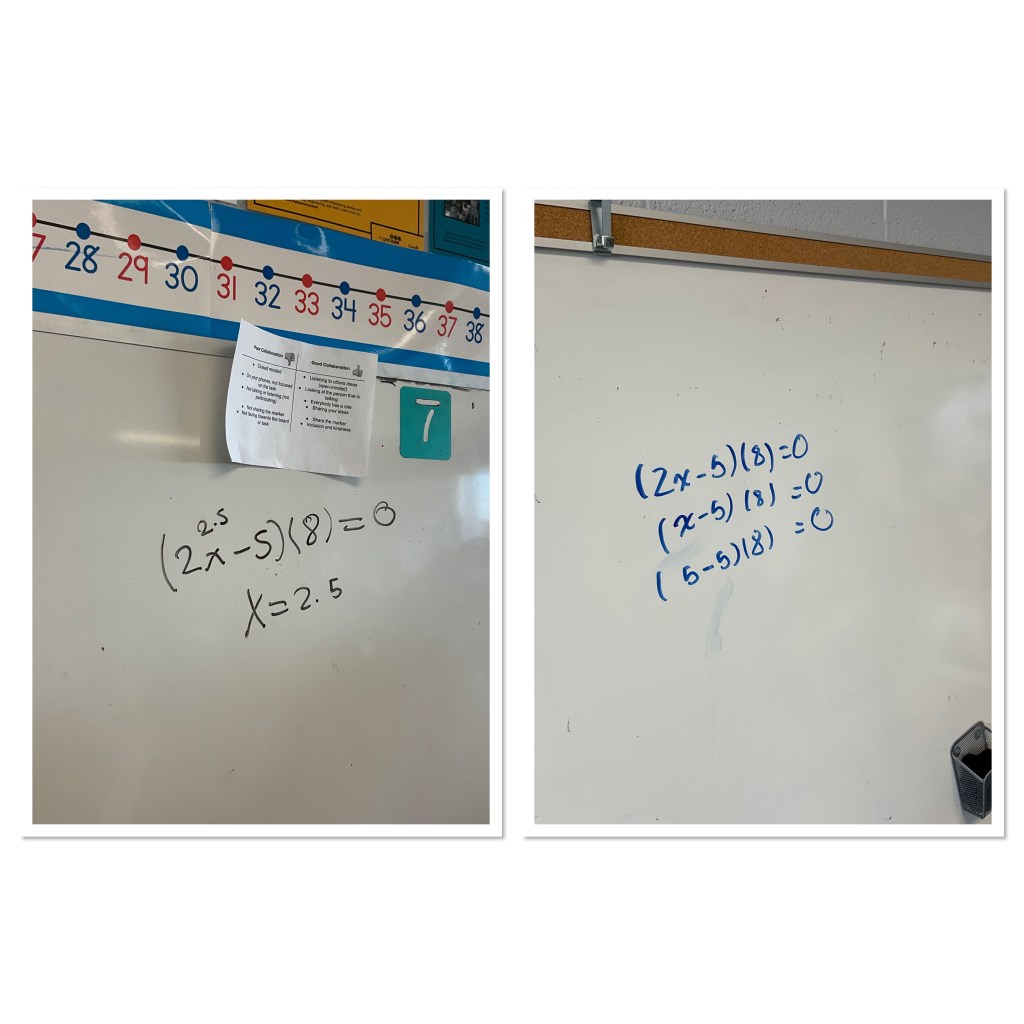 28 29 30 31 32 33 34 35 36 37 38
Poor Collaboration
Closed minded
On your phones, not focused
on the task
Not talking or listening (not
participating)
Not sharing the marker
Not facing towards the board
or task
Good Collaboration
Listening to others ideas
(open-minded)
Looking at the person that is
talking
Everybody has a role
Sharing your ideas
Share the marker
Inclusion and kindness
7
2.5
(2x-5)(8)=0
x=2.5
(2x-5)(8)=0
(x-5)(8)=0
(5-5)(8)=0